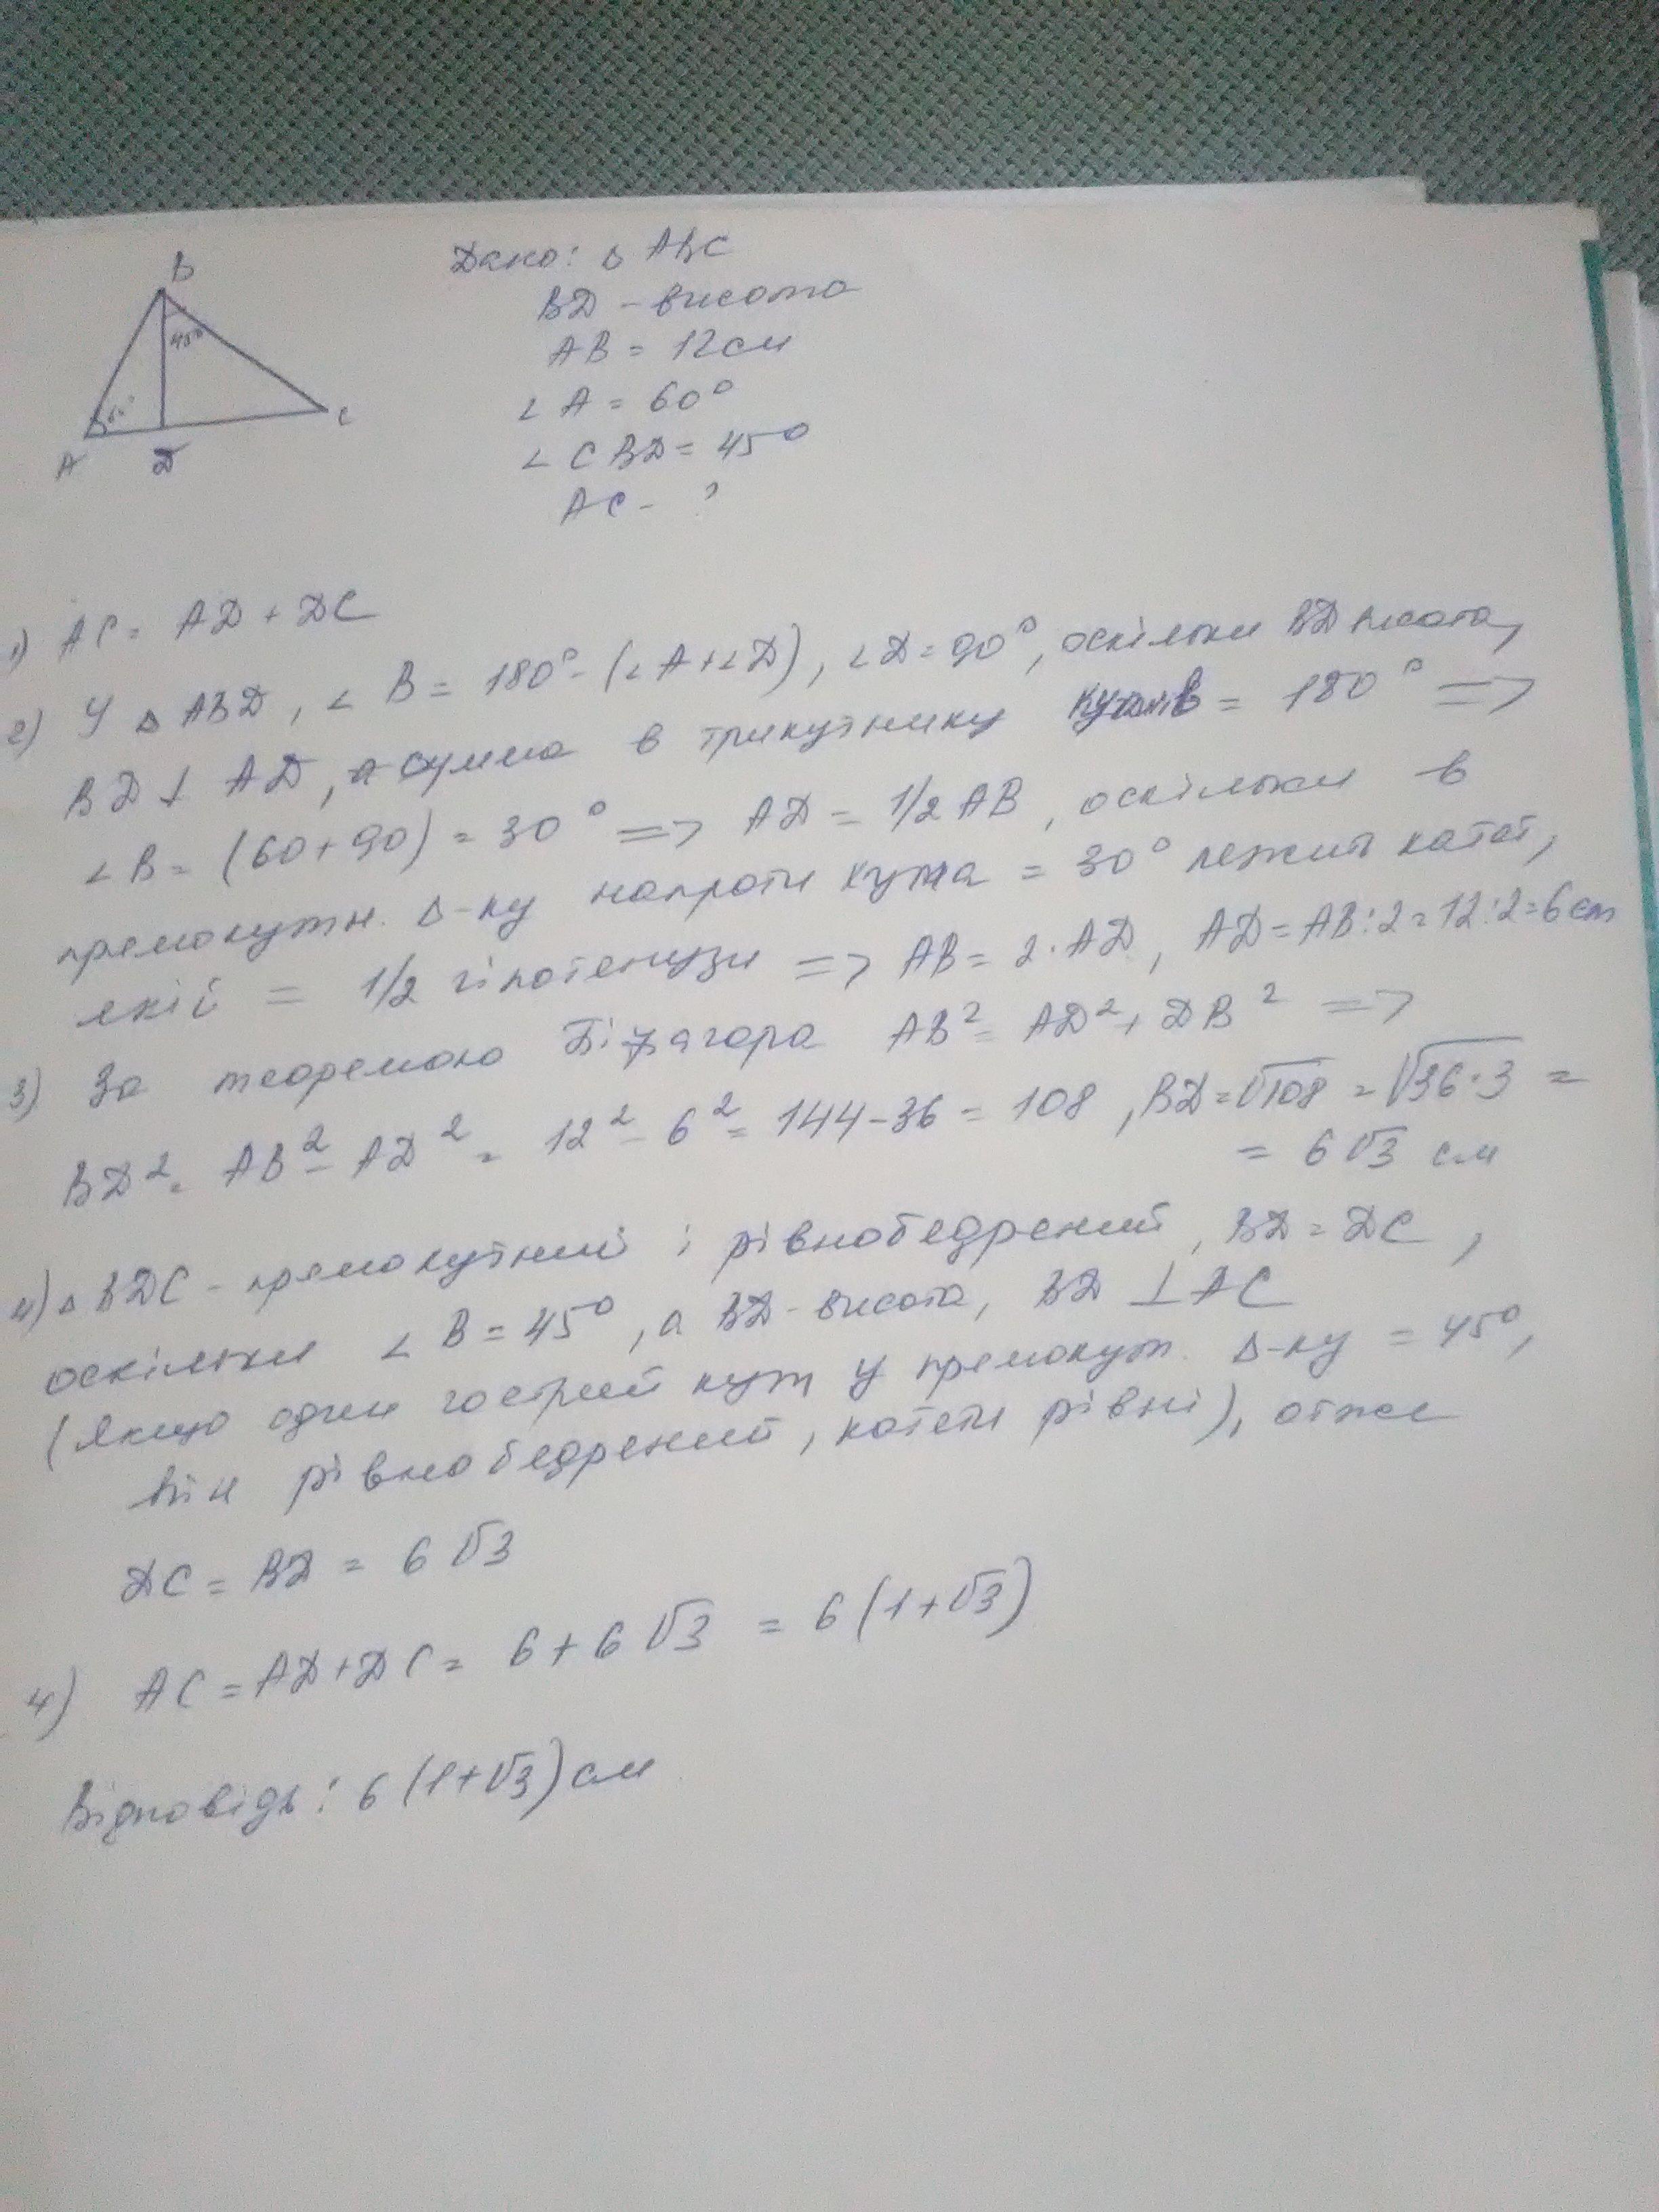 B
45°
60°
A
D
C
Дано: △ ABC
BD - висота
AB = 12 см
∠ A = 60°
∠ CBD = 45°
AC - ?
1) AC = AD + DC
2) У △ ABD, ∠ B = 180° - (∠A+∠D), ∠D = 90°, оскільки BD висота,
BD ⊥ AD, а сумма в трикутнику кутів = 180° =>
∠B = (60+90) = 30° => AD = 1/2 AB, оскільки в
прямокутн. △-ку напроти кута = 30° лежит катет,
якій = 1/2 гіпотенузи => AB = 2·AD, AD = AB:2 = 12:2 = 6 cm
3) За теоремою Піфагора AB² = AD² + DB² =>
BD² = AB² - AD² = 12² - 6² = 144 - 36 = 108, BD = √108 = √36·3 =
= 6√3 см
4) △ BDC - прямокутний і рівнобедрений, BD = DC,
оскільки ∠ B = 45°, а BD - висота, BD ⊥ AC
(якщо один гострий кут у прямокут. △-ку = 45°,
він рівнобедрений, катети рівні), отже
DC = BD = 6√3
4) AC = AD + DC = 6 + 6√3 = 6(1+√3)
Відповідь: 6(1+√3) см